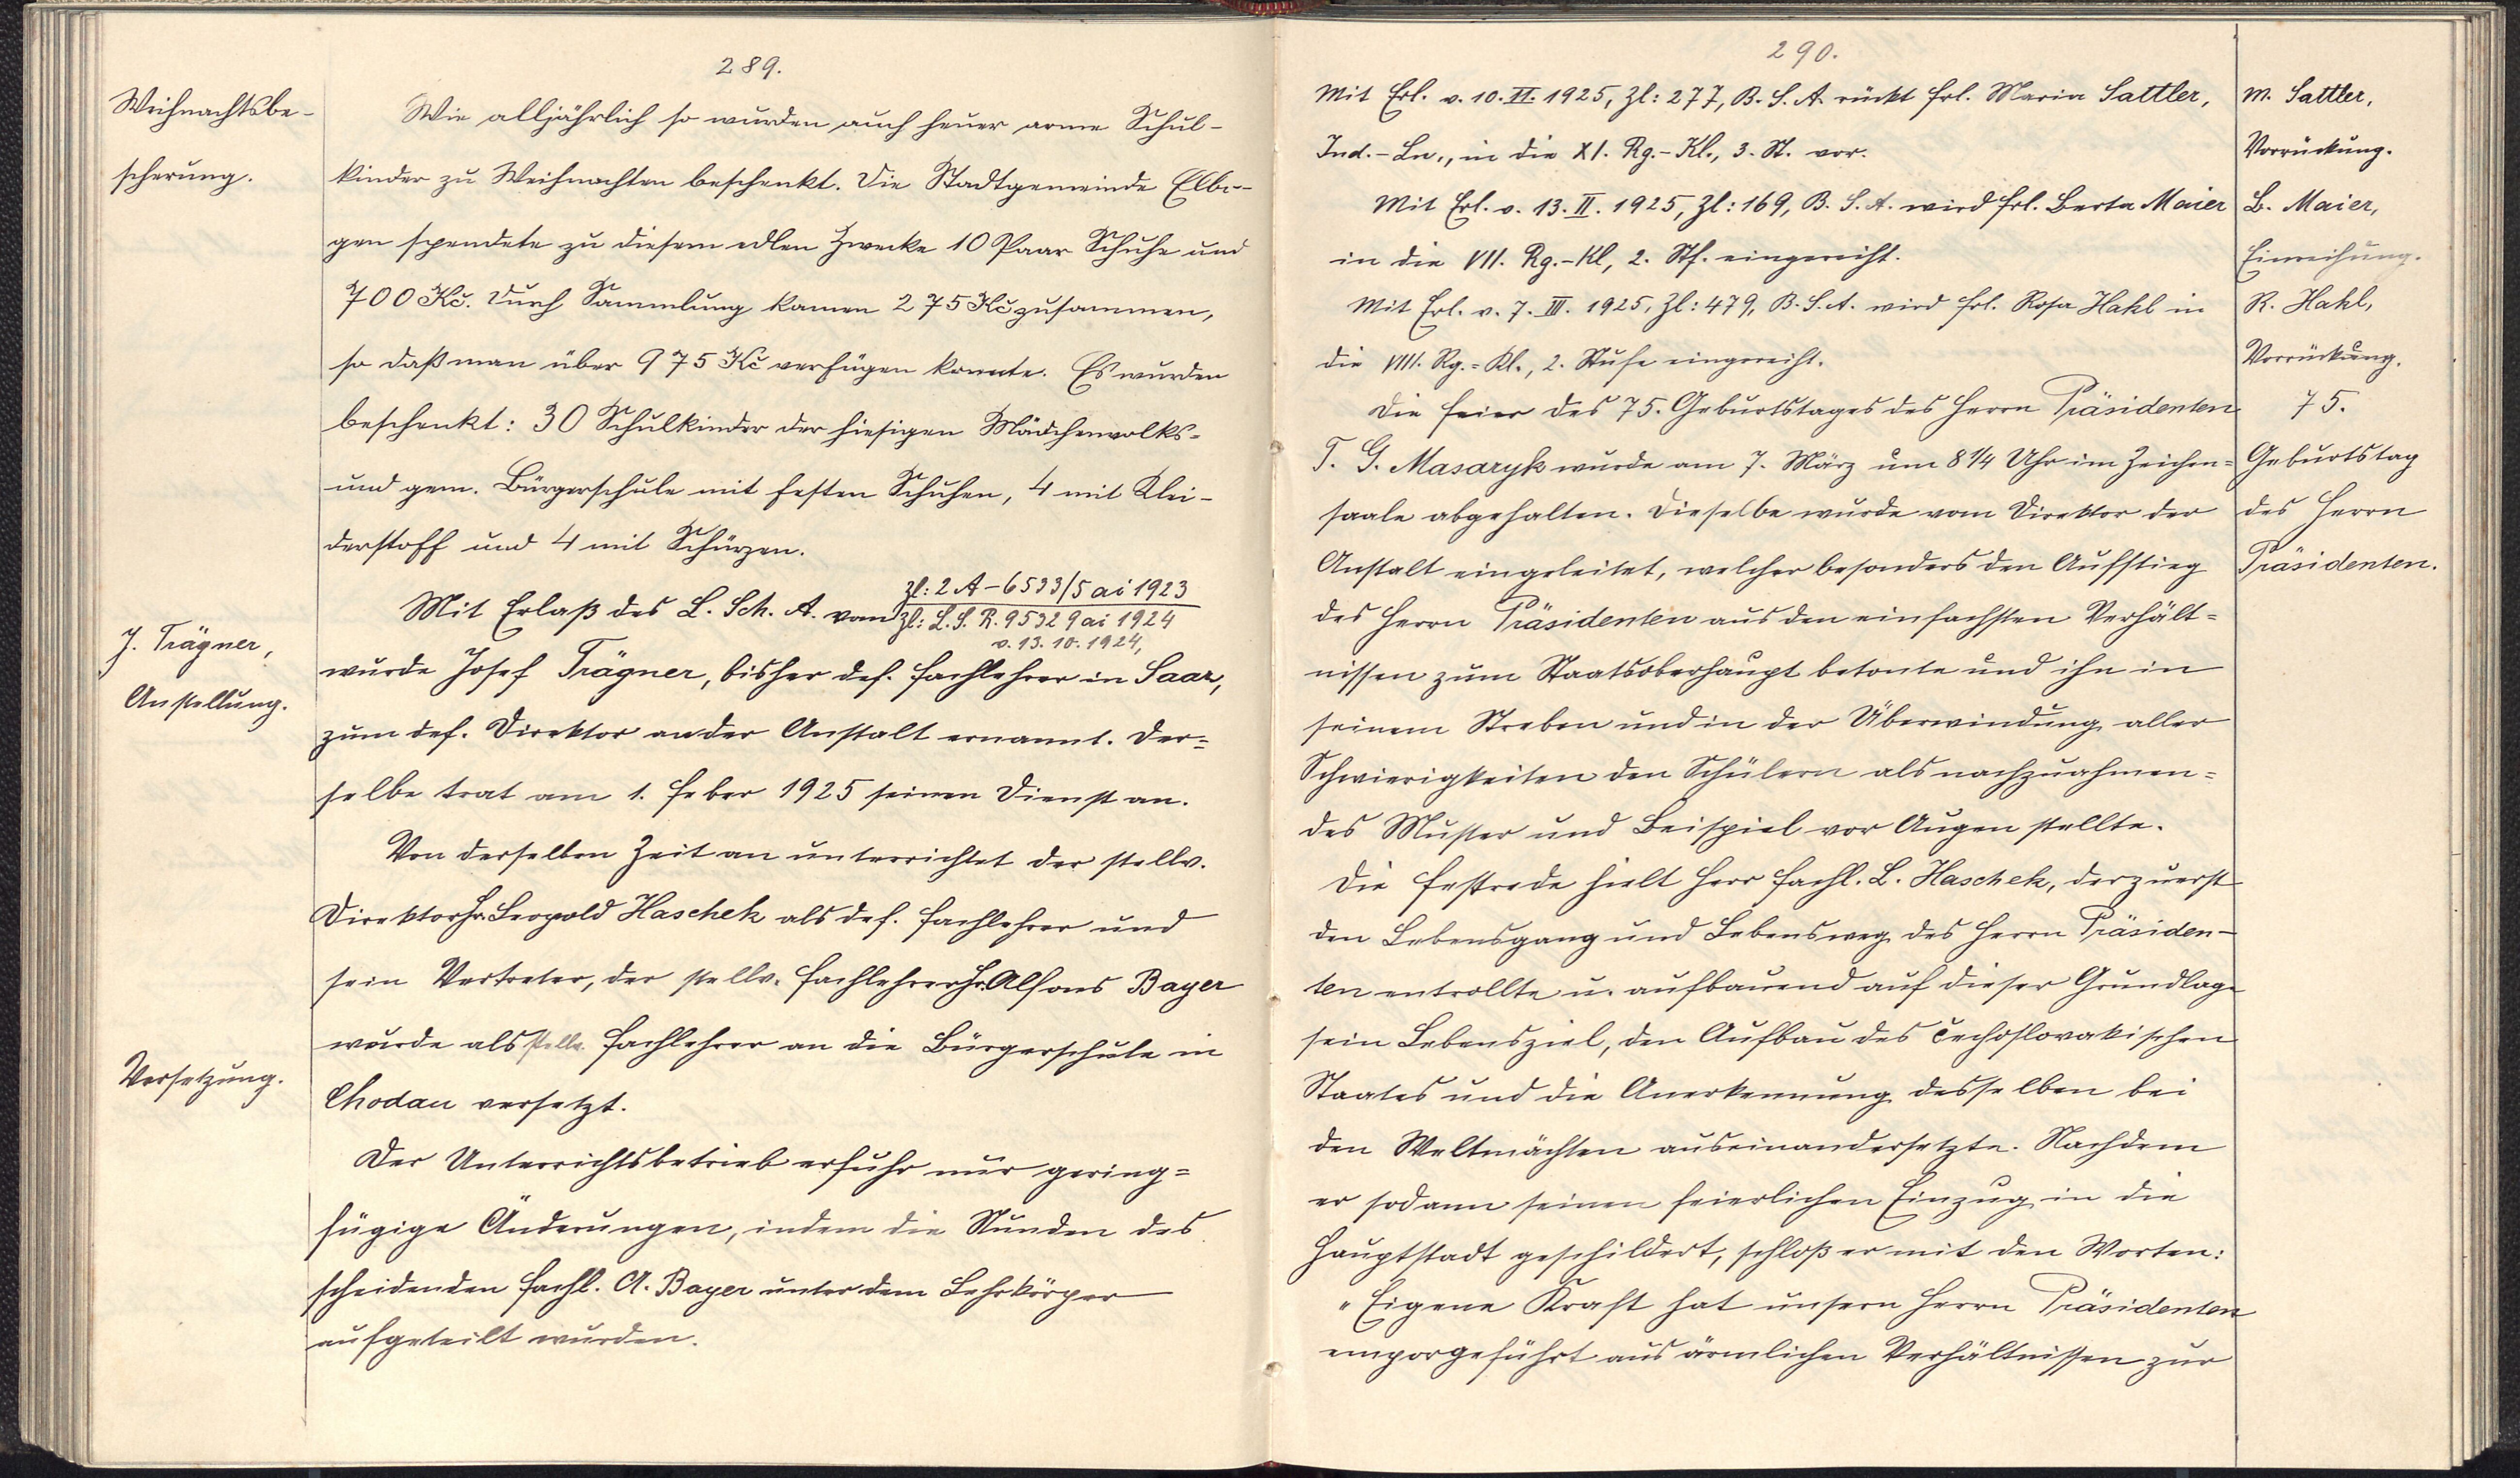 289.
Weihnachtsbe-
scherung.
Wie alljährlich so wurden auch heuer arme Schul-
kinder zu Weihnachten beschenkt. Die Stadtgemeinde Elbo-
gen spendete zu diesem edlen Zwecke 10 Paar Schuhe und
700 Kč. Durch Sammlung kamen 275 Kč zusammen,
so daß man über 975 Kč verfügen konnte. Es wurden
beschenkt: 30 Schulkinder der hiesigen Mädchenvolks-
und gem. Bürgerschule mit festen Schuhen, 4 mit Klei-
derstoff und 4 mit Schürzen.
Zl: 2 A - 6533/5 ai 1923
Mit Erlaß des L. Sch. A. vom Zl: L. S. R. 95329 ai 1924
v. 13. 10. 1924,
J. Trägner,
Anstellung.
wurde Josef Trägner, bisher def. Fachlehrer in Saar,
zum def. Direktor an der Anstalt ernannt. Der=
selbe trat am 1. Feber 1925 seinen Dienst an.
Von derselben Zeit an unterrichtet der stellv.
Direktor Hr. Leopold Haschek als def. Fachlehrer und
sein Vertreter, der stellv. Fachlehrer Hr. Alfons Bayer
wurde als stellv. Fachlehrer an die Bürgerschule in
Versetzung.
Chodau versetzt.
Der Unterrichtsbetrieb erfuhr nur gering=
fügige Änderungen, indem die Stunden des
scheidenden Fachl. A. Bayer unter dem Lehrkörper
aufgeteilt wurden.
290.
Mit Erl. v. 10. II. 1925, Zl: 277, B. S. A. rückt Frl. Maria Sattler,
Ind.-Ln., in die XI. Rg.-Kl., 3. St. vor.
Mit Erl. v. 13. II. 1925, Zl: 169, B. S. A. wird Frl. Berta Maier
in die VII. Rg.-Kl, 2. Stf. eingereiht.
Mit Erl. v. 7. III. 1925, Zl: 479, B. S. A. wird Frl. Rosa Hakl in
die VIII. Rg.=Kl., 2. Stufe eingereiht.
Die Feier des 75. Geburtstages des Herrn Präsidenten
T. G. Masaryk wurde am 7. März um 8 1/4 Uhr im Zeichen=
saale abgehalten. Dieselbe wurde vom Direktor der
Anstalt eingeleitet, welcher besonders den Aufstieg
des Herrn Präsidenten aus den einfachsten Verhält=
nissen zum Staatsoberhaupt betonte und ihn in
seinem Streben und in der Überwindung aller
Schwierigkeiten den Schülern als nachzuahmen=
des Muster und Beispiel vor Augen stellte.
Die Festrede hielt Herr Fachl. L. Haschek, der zuerst
den Lebensgang und Lebensweg des Herrn Präsiden-
ten entrollte u. aufbauend auf dieser Grundlage
sein Lebensziel, den Aufbau des čechoslovakischen
Staates und die Anerkennung desselben bei
den Weltmächten auseinandersetzte. Nachdem
er sodann seinen feierlichen Einzug in die
Hauptstadt geschildert, schloß er mit den Worten:
"Eigene Kraft hat unsern Herrn Präsidenten
emporgeführt aus ärmlichen Verhältnissen zur
M. Sattler,
Vorrückung.
B. Maier,
Einreihung.
R. Hakl,
Vorrückung.
75.
Geburtstag
des Herrn
Präsidenten.